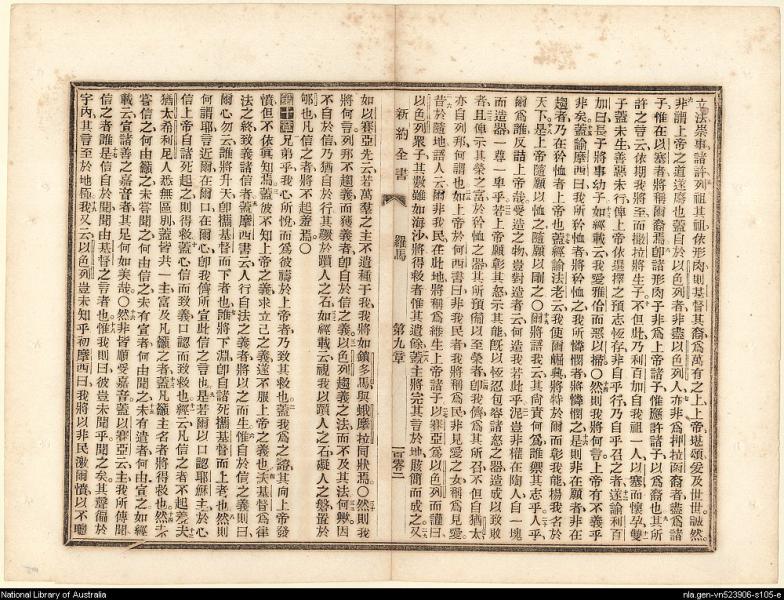 立法崇事諸許列祖其祖依形肉則基督其裔爲萬有之上上帝堪頌爰及世世誠然
非謂上帝之道遂廢也蓋自於以色列者非盡以色列人亦非爲押拉函裔者盡爲諸
子惟在以塞者將稱爾裔焉卽諸形肉子非爲上帝諸子惟應許諸子以爲裔也其所
許之言云依期我將至而撒拉將生子不但此乃利百加自我祖一人以塞而懷孕雙
子蓋未生善惡未行俾上帝依選擇之預志恆存非自乎行乃自乎召之者遂諭利百
加曰長子將事幼子如經載云我愛雅伯而惡以掃○然則我將何言上帝有不義乎
非矣蓋諭摩西曰我所矜恤者將矜恤之我所憐憫者將憐憫之是則非在願者非在
趨者乃在矜恤者上帝也蓋經諭法老云我使爾崛興將特於爾而彰我能揚我名於
天下是上帝隨願以恤之隨願以剛之○爾將語我云其尙責何爲誰禦其志乎人乎
爾爲誰反詰上帝哉受造之物豈對造者云何造我若此乎泥豈非權在陶人自一塊
而造器一尊一卑乎若上帝願彰其怒示其能旣以恆忍包容諸怒之器造成以致敗
者且俾示其榮之富於矜恤之器其所預備以至榮者卽我儕爲其所召不但自猶太
亦自列邦何謂也如上帝於何西書曰非我民者我將稱爲民非見愛之女稱爲見愛
昔於隨地語人云爾非我民在此地將稱爲維生上帝諸子以賽亞爲以色列而讙曰
以色列衆子其數雖如海沙將得救者惟其遺餘蓋主將完其言於地簡而成之又
新約全書 羅馬 第九章 一百零二
如以賽亞先云若萬羣之主不遺種于我我將如鎖多馬與蛾摩拉同狀焉○然則我
將何言列邦不趨義而獲義者卽自於信之義以色列趨義之法而不及其法何歟因
不自於信乃猶自於行其蹶於躓人之石如經載云視我以躓人之石礙人之磐置於
郇也凡信之者將不起羞焉○
第十章兄弟乎我心所悅而爲彼禱於上帝者乃致其救也蓋我爲之證其向上帝發
憤但不依眞知焉蓋彼不知上帝之義求立己之義遂不服上帝之義也夫基督爲律
法之終致義諸信者蓋摩西書云人行自法之義者將以之而生惟自於信之義則曰
爾心勿云誰將升天卽攜基督而下者也誰將下淵卽自諸死攜基督而上者也然則
何謂耶言近爾在爾口在爾心卽我儕所宣此信之言也是若爾以口認耶穌主於心
信上帝自諸死起之則得救蓋心信而致義口認而致救也經云凡信之者不起羞夫
猶太希利尼人悉無區別蓋皆共一主富及凡籲之者蓋凡籲主名者將得救也然未
嘗信之何由籲之未嘗聞之何由信之未有宣者何由聞之未有遣者何由宣之如經
載云宣諸善之嘉音者其足何如美哉○然非皆順受嘉音蓋以賽亞云主我所傳聞
信之者誰是信自於聞聞由基督之言者也惟我則曰彼豈未聞乎聞之矣其聲徧於
宇內其言至於地極我又云以色列豈未知乎初摩西曰我將以非民激爾憤以不聰
National Library of Australia
nla.gen-vn523906-s105-e